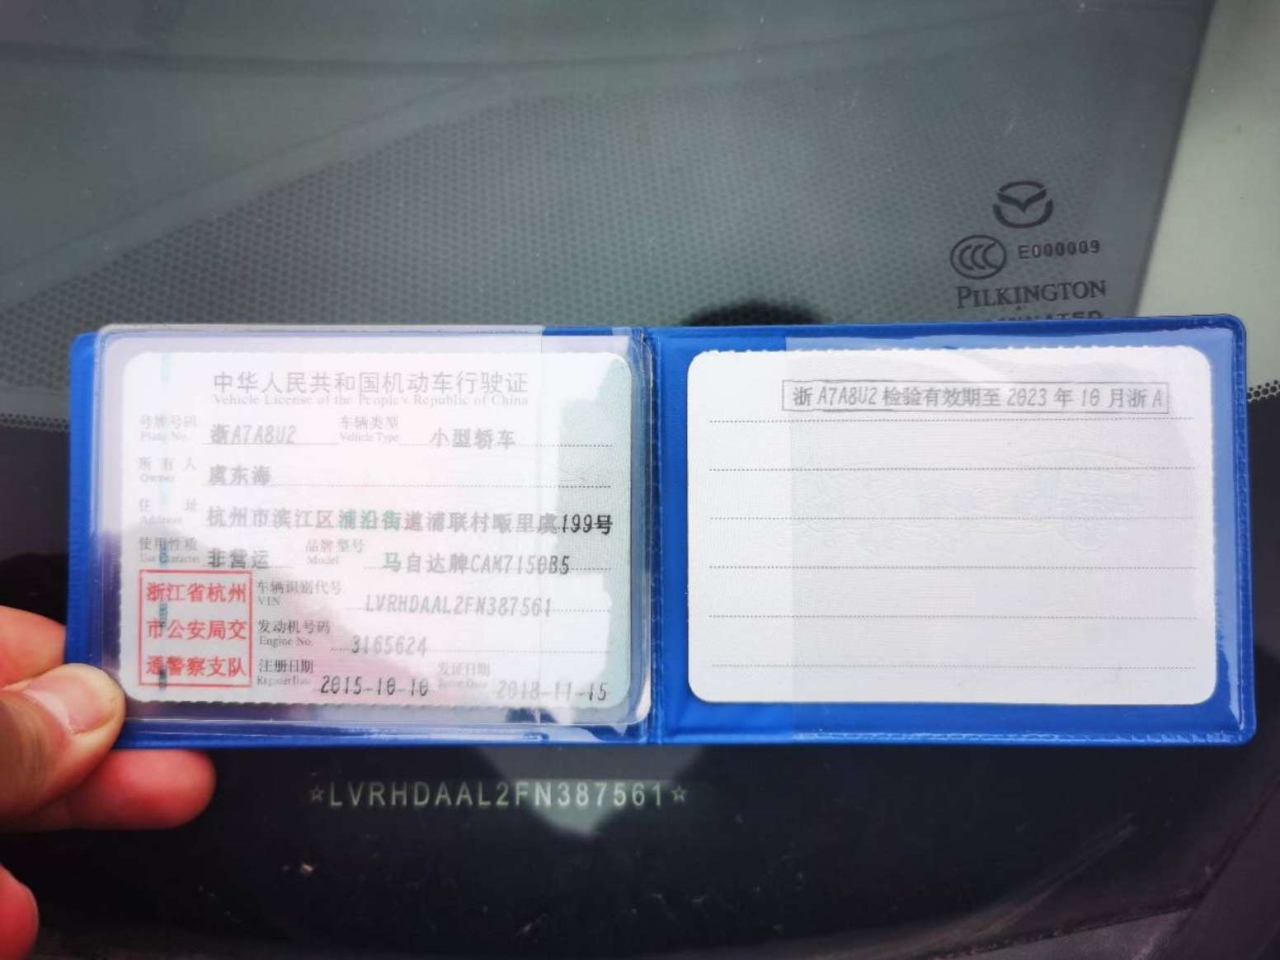 E000009
PILKINGTON
中华人民共和国机动车行驶证
Vehicle License of the People's Republic of China
号牌号码 浙A7A8U2 车辆类型 小型轿车
Plate No. Vehicle Type
所有人 虞东海
Owner
住址 杭州市滨江区浦沿街道浦联村畈里虞199号
Address
使用性质 非营运 品牌型号 马自达牌CAM7150B5
Use Character Model
浙江省杭州
市公安局交
通警察支队
车辆识别代号 LVRHDAAL2FN387561
VIN
发动机号码 3165624
Engine No.
注册日期 2015-10-10 发证日期 2018-11-15
Register Date Issue Date
浙A7A8U2检验有效期至2023年10月浙A
☆LVRHDAAL2FN387561☆